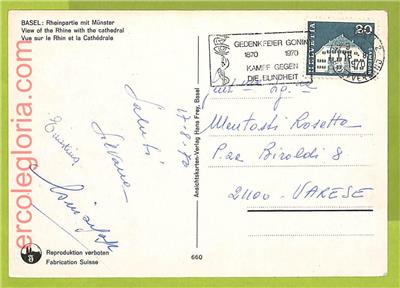 BASEL: Rheinpartie mit Münster
View of the Rhine with the cathedral
Vue sur le Rhin et la Cathédrale
GEDENKFEIER GONIN
1870 1970
KAMPF GEGEN
DIE BLINDHEIT
HELVETIA
20
17.8.70
Saluti
Silvana
Ansichtskarten-Verlag Hans Frey, Basel
Mentasti Rosetta
P.zza Biroldi 8
21100 - VARESE
Reproduktion verboten
Fabrication Suisse
660
ercolegloria.com